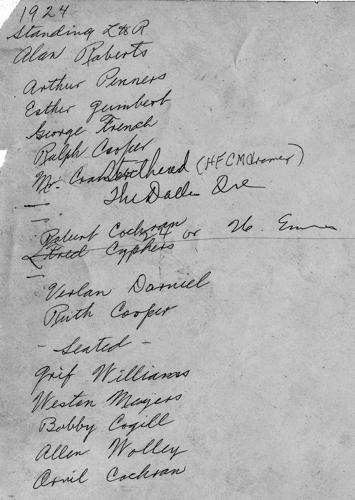 1924
Standing L to R
Alan Roberts
Arthur Penners
Esther Gumbert
George French
Ralph Cooper
Mr. (HFCM Cramer)
The Dalles Ore
—
—
Robert Cochran
24 or
Cyphers
—
Verlan Daniel
Ruth Cooper
- Seated -
Grif Williams
Westen Meyers
Bobby Cogill
Allen Wolley
Orvil Cochran